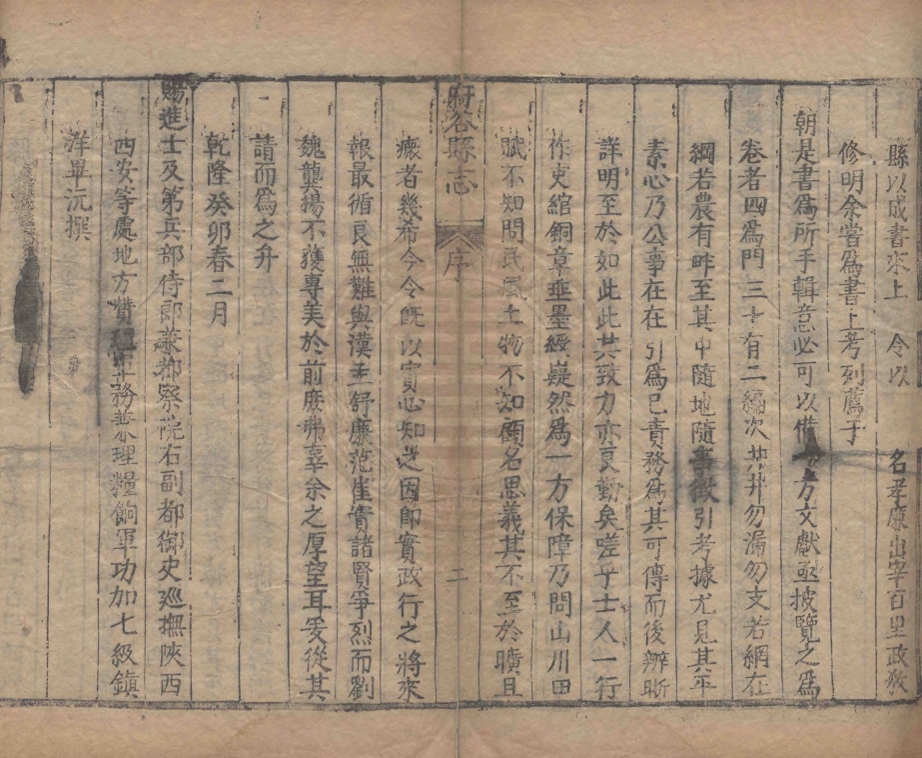 縣以成書來上 令以 名孝廉出宰百里政教
修明余嘗爲書上考列薦于
朝是書爲所手輯意必可以備 方文獻亟披覽之爲
卷者四爲門三十有二編次共井勿漏勿支若網在
綱若農有畔至其中隨地隨事徵引考據尤見其平
素心乃公事在在引爲已責務爲其可傳而後辨晰
詳明至於如此此其致力亦良勤矣嗟乎士人一行
作吏綰銅章垂墨綬嶷然爲一方保障乃問山川田
賦不知問民風土物不知顧名思義其不至於曠且
府谷縣志 序 二
瘝者幾希今令旣以實心知之因卽實政行之將來
報最循良無難與漢王舒廉范崔寔諸賢爭烈而劉
魏龔揚不獲專美於前庶弗辜余之厚望耳爰從其
請而爲之弁
乾隆癸卯春二月
賜進士及第兵部侍郎兼都察院右副都御史廵撫陝西
西安等處地方贊理軍務兼理糧餉軍功加七級鎮
洋畢沅撰